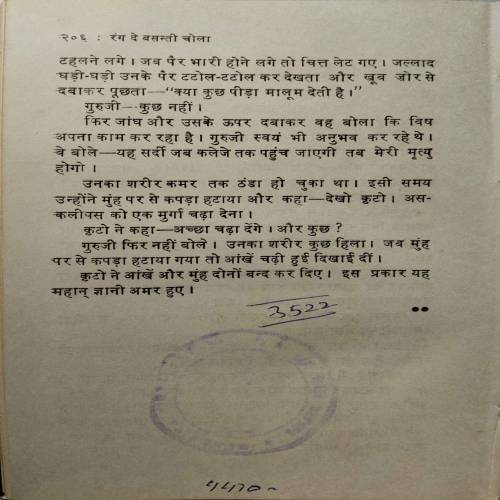 २०६ : रंग दे बसन्ती चोला
टहलने लगे । जब पैर भारी होने लगे तो चित्त लेट गए । जल्लाद
घड़ी-घड़ी उनके पैर टटोल-टटोल कर देखता और खूब ज़ोर से
दबाकर पूछता—“क्या कुछ पीड़ा मालूम देती है ।”
गुरुजी—कुछ नहीं ।
फिर जांघ और उसके ऊपर दबाकर वह बोला कि विष
अपना काम कर रहा है । गुरुजी स्वयं भी अनुभव कर रहे थे ।
वे बोले—यह सर्दी जब कलेजे तक पहुंच जाएगी तब मेरी मृत्यु
होगी ।
उनका शरीर कमर तक ठंडा हो चुका था । इसी समय
उन्होंने मुंह पर से कपड़ा हटाया और कहा—देखो क्रूटो । अस-
कलीपस को एक मुर्गा चढ़ा देना ।
क्रूटो ने कहा—अच्छा चढ़ा देंगे । और कुछ ?
गुरुजी फिर नहीं बोले । उनका शरीर कुछ हिला । जब मुंह
पर से कपड़ा हटाया गया तो आंखें चढ़ी हुई दिखाई दीं ।
क्रूटो ने आंखें और मुंह दोनों बन्द कर दिए । इस प्रकार यह
महान् ज्ञानी अमर हुए ।
3522
4470-